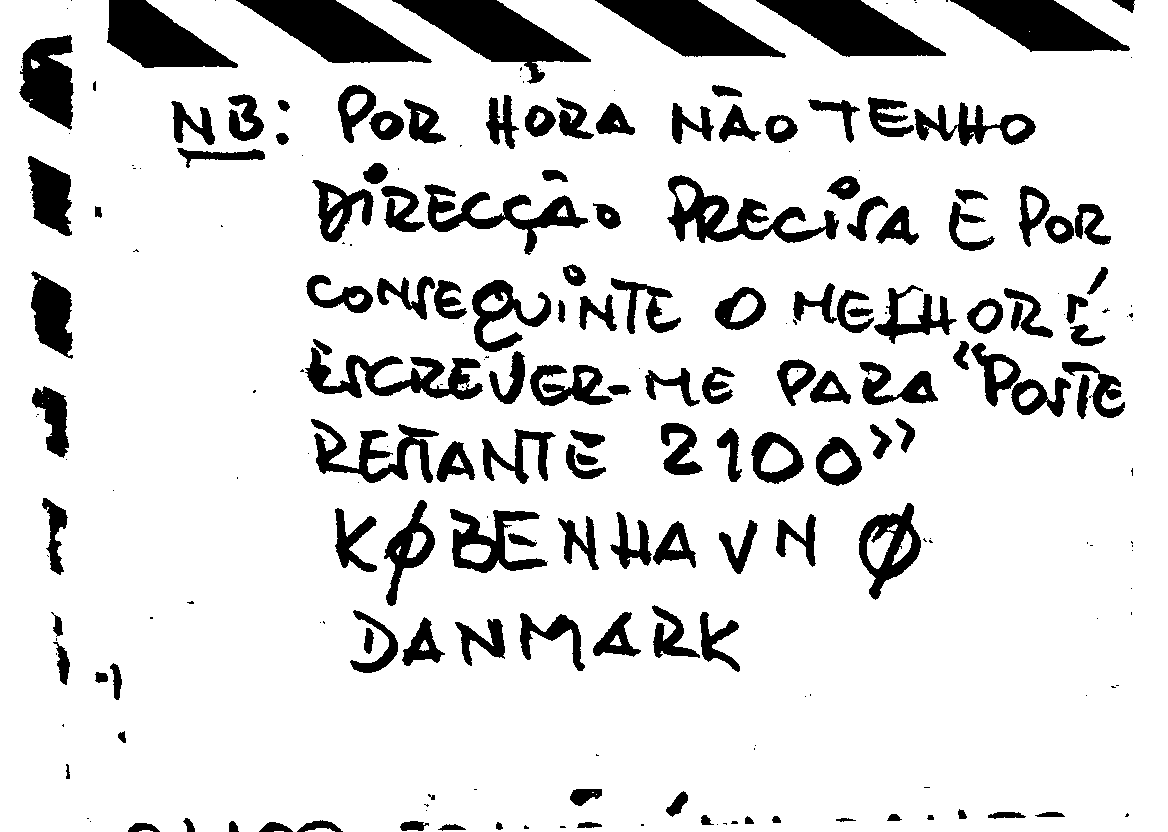 NB: POR HORA NÃO TENHO
DIRECÇÃO PRECISA E POR
CONSEQUINTE O MELHOR É
ESCREVER-ME PARA "POSTE
RESTANTE 2100"
KØBENHAVN Ø
DANMARK